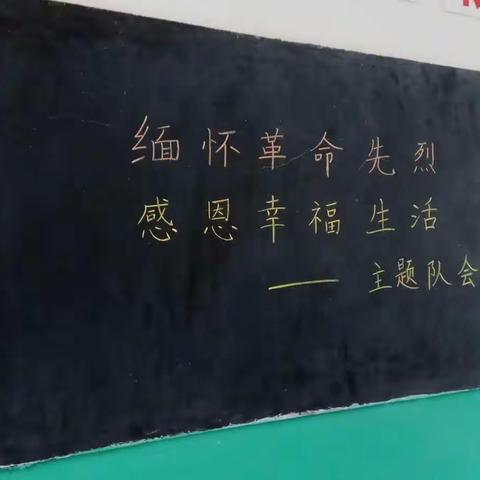 缅怀革命先烈
感恩幸福生活
—— 主题队会